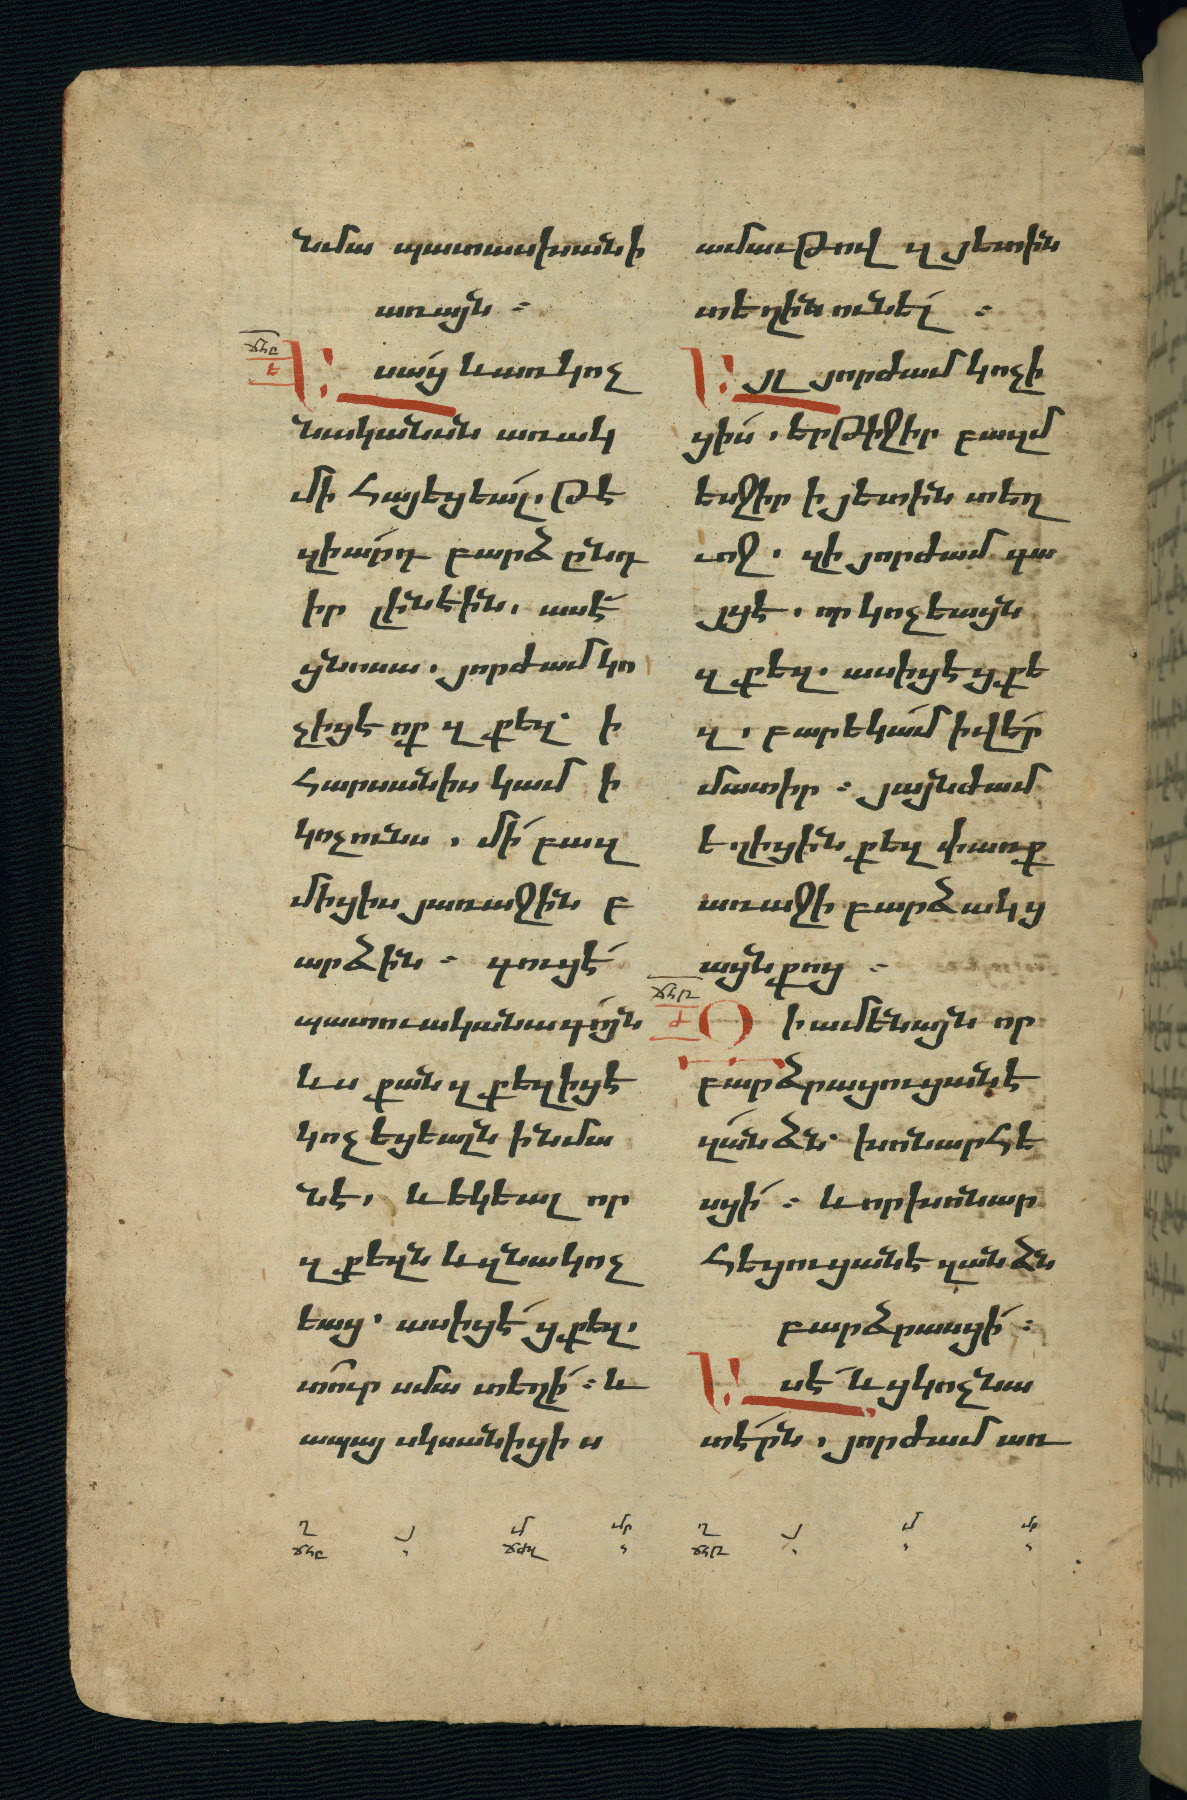 նմա պատասխանի
առայն ։
ճհը
Ասաց և առ կոչ
նականսն առակ
մի հայեցեալ. թէ
զիարդ բարձ ընդ
իր լինէին. ասէ
ցնոսա. յորժամ կո
չիցէ ոք զքեզ՝ ի
հարսանիս կամ ի
կոչունս, մի բազ
միցիս յառաջին բ
արձին ։ գուցէ
պատուականագոյն
ևս քան զքեզ իցէ
կոչեցեալն ի նմա
նէ, և եկեալ որ
զքեզն և զնա կոչ
եաց՝ ասիցէ ցքեզ.
տուր սմա տեղի ։ և
ապայ սկսանիցի ս
ամաւթով զյետին
տեղին ունել ։
Այլ յորժամ կոչի
ցիս, երթիջիր բազմ
եսջիր ի յետին տեղ
ւոջ, զի յորժամ գա
յցէ, որ կոչեացն
զքեզ. ասիցէ ցքե
զ, բարեկամ ի վեր
մատիր ։ յայնժամ
եղիցին քեզ փառք
առաջի բարձակց
ացն քոց ։
ճհթ
Զի ամենայն որ
բարձրացուցանէ
զանձն՝ խոնարհե
սցի ։ և որ խոնար
հեցուցանէ զանձն
բարձրասցի ։
Ասէ և ցկոչնա
տէրն, յորժամ առ
Ղ Յ Մ Մր Ղ Յ Մ Մր
ճհը ճհթ